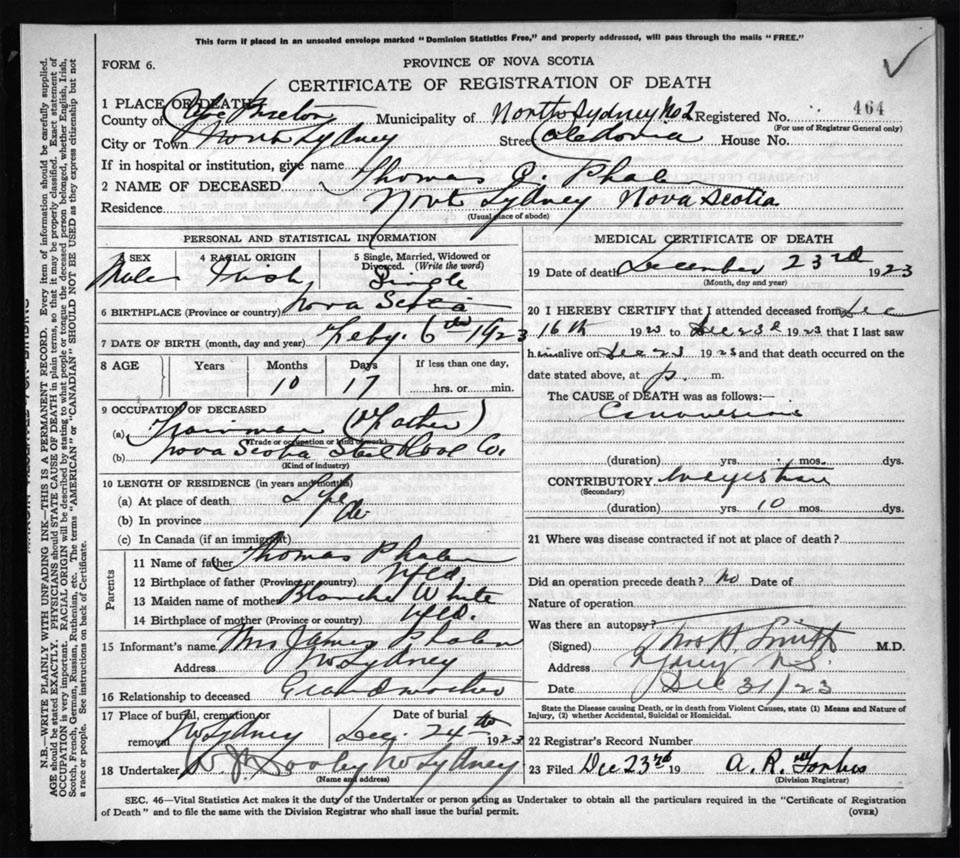 This form if placed in an unsealed envelope marked "Dominion Statistics Free," and properly addressed, will pass through the mails "FREE."
FORM 6.
PROVINCE OF NOVA SCOTIA
CERTIFICATE OF REGISTRATION OF DEATH
1 PLACE OF DEATH
County of Cape Breton Municipality of North Sydney No 2 Registered No. 464
(For use of Registrar General only)
City or Town North Sydney Street Caledonia House No.
If in hospital or institution, give name
2 NAME OF DECEASED Thomas J. Phalen
Residence North Sydney Nova Scotia
(Usual place of abode)
PERSONAL AND STATISTICAL INFORMATION
3 SEX 4 RACIAL ORIGIN 5 Single, Married, Widowed or Divorced. (Write the word)
Male Irish Single
6 BIRTHPLACE (Province or country) Nova Scotia
7 DATE OF BIRTH (month, day and year) Feby. 6th 1923
8 AGE Years Months Days If less than one day,
10 17 hrs. or min.
9 OCCUPATION OF DECEASED
(a) Trainman (Father)
(Trade or occupation or kind of work)
(b) Nova Scotia Steel Coal Co.
(Kind of industry)
10 LENGTH OF RESIDENCE (in years and months)
(a) At place of death Life
(b) In province do
(c) In Canada (if an immigrant)
Parents
11 Name of father Thomas Phalen
12 Birthplace of father (Province or country) Nfld.
13 Maiden name of mother Blanche White
14 Birthplace of mother (Province or country) Nfld.
15 Informant's name Mrs James Phalen
Address N Sydney
16 Relationship to deceased Grandmother
17 Place of burial, cremation or removal N Sydney Date of burial Dec. 24th 1923
18 Undertaker N Sydney
(Name and address)
MEDICAL CERTIFICATE OF DEATH
19 Date of death December 23rd 1923
(Month, day and year)
20 I HEREBY CERTIFY that I attended deceased from Dec
16th 1923 to Dec 23d 1923 that I last saw
him alive on Dec 23 1923 and that death occurred on the
date stated above, at p. m.
The CAUSE of DEATH was as follows:—
(duration) yrs. mos. dys.
CONTRIBUTORY
(Secondary)
(duration) yrs. 10 mos. dys.
21 Where was disease contracted if not at place of death?
Did an operation precede death? no Date of
Nature of operation
Was there an autopsy?
(Signed) M.D.
Address Sydney N.S.
Date Dec 31/23
State the Disease causing Death, or in death from Violent Causes, state (1) Means and Nature of Injury, (2) whether Accidental, Suicidal or Homicidal.
22 Registrar's Record Number
23 Filed Dec 23rd 19 A. R. Forbes
(Division Registrar)
SEC. 46—Vital Statistics Act makes it the duty of the Undertaker or person acting as Undertaker to obtain all the particulars required in the "Certificate of Registration
of Death" and to file the same with the Division Registrar who shall issue the burial permit. (OVER)
N.B.—WRITE PLAINLY WITH UNFADING INK—THIS IS A PERMANENT RECORD. Every item of information should be carefully supplied.
AGE should be stated EXACTLY. PHYSICIANS should STATE CAUSE OF DEATH in plain terms, so that it may be properly classified. Exact statement of
OCCUPATION is very important. RACIAL ORIGIN will be described by stating to what people or tongue the deceased person belonged, whether English, Irish,
Scotch, French, German, Russian, Ruthenian, etc. The terms "AMERICAN" or "CANADIAN" SHOULD NOT BE USED as they express citizenship but not
a race or people. See instructions on back of Certificate.